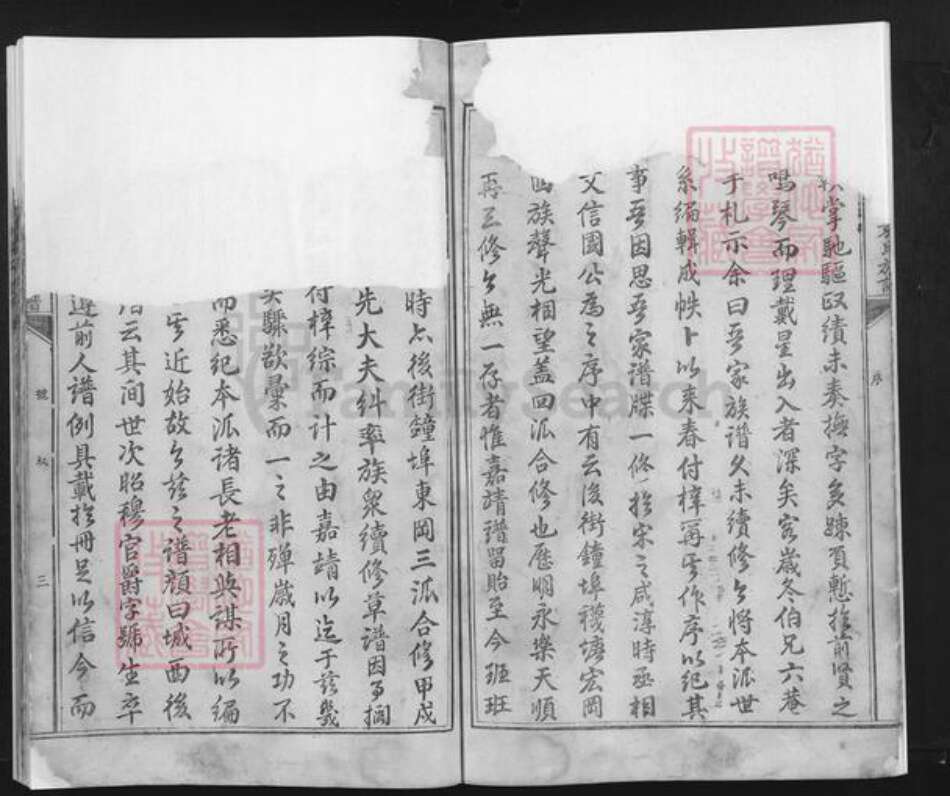 掌馳驅收績未奏撫字多踈項慙於前賢之
鳴琴而理戴星出入者深矣客歲冬伯兄六菴
于札示余曰吾家族譜久未續修今將本派世
系編輯成帙卜以來春付梓再字作序以紀其
事吾因思吾家譜牒一修於宋之咸淳時丞相
文信國公為之序中有云後街鐘埠襪塘宏岡
四族聲光相望蓋四派合修也歷明永樂天順
再三修今無一存者惟嘉靖譜留貽至今班班
時亦後街鐘埠東岡三派合修甲戌
先大夫糾率族衆續修草譜因可擱
付梓綜而計之由嘉靖以迄于玆幾
矣驟欲彙而一之非殫歲月之功不
而悉紀本派諸長老相與謀所以編
近始故今玆之譜顏曰城西後
云其間世次昭穆官爵字號生卒
遵前人譜例具載於冊足以信今而
序
譜
三
FamilySearch